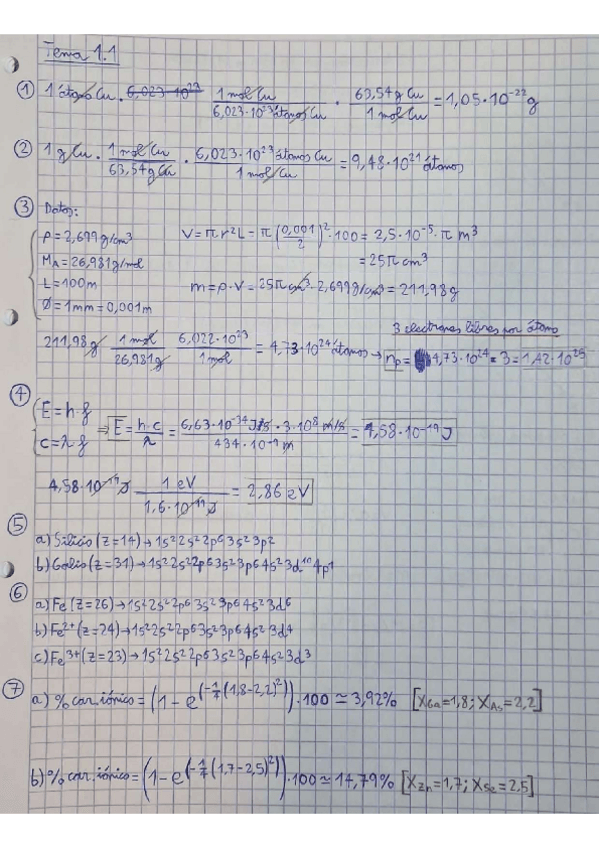 Tema 1.1
① 1 átomo Cu · 6,023·10²³ 1 mol Cu / 6,023·10²³ átomos Cu · 63,54 g Cu / 1 mol Cu = 1,05·10⁻²² g
② 1 g Cu · 1 mol Cu / 63,54 g Cu · 6,023·10²³ átomos Cu / 1 mol Cu = 9,48·10²¹ átomos
③ Datos:
ρ = 2,699 g/cm³ V = π r² L = π (0,001/2)² · 100 = 2,5·10⁻⁵·π m³
M_A = 26,981 g/mol = 25π cm³
L = 100 m m = ρ·V = 25π cm³ · 2,699 g/cm³ = 211,98 g
Ø = 1mm = 0,001 m
3 electrones libres por átomo
211,98 g 1 mol / 26,981 g 6,022·10²³ / 1 mol = 4,73·10²⁴ átomos → np = 4,73·10²⁴ · 3 = 1,42·10²⁵
④ E = h·f
c = λ·f ⇒ E = h·c / λ = 6,63·10⁻³⁴ J·s · 3·10⁸ m/s / 434·10⁻⁹ m = 4,58·10⁻¹⁹ J
4,58·10⁻¹⁹ J 1 eV / 1,6·10⁻¹⁹ J = 2,86 eV
⑤
a) Silicio (z=14) → 1s² 2s² 2p⁶ 3s² 3p²
b) Galio (z=31) → 1s² 2s² 2p⁶ 3s² 3p⁶ 4s² 3d¹⁰ 4p¹
⑥
a) Fe (z=26) → 1s² 2s² 2p⁶ 3s² 3p⁶ 4s² 3d⁶
b) Fe²⁺ (z=24) → 1s² 2s² 2p⁶ 3s² 3p⁶ 4s² 3d⁴
c) Fe³⁺ (z=23) → 1s² 2s² 2p⁶ 3s² 3p⁶ 4s² 3d³
⑦ a) % car. iónico = (1 - e^(-1/4 (1,8-2,2)²)) · 100 ≃ 3,92% [X_Ga = 1,8 ; X_As = 2,2]
b) % car. iónico = (1 - e^(-1/4 (1,7-2,5)²)) · 100 ≃ 14,79% [X_Zn = 1,7 ; X_Se = 2,5]